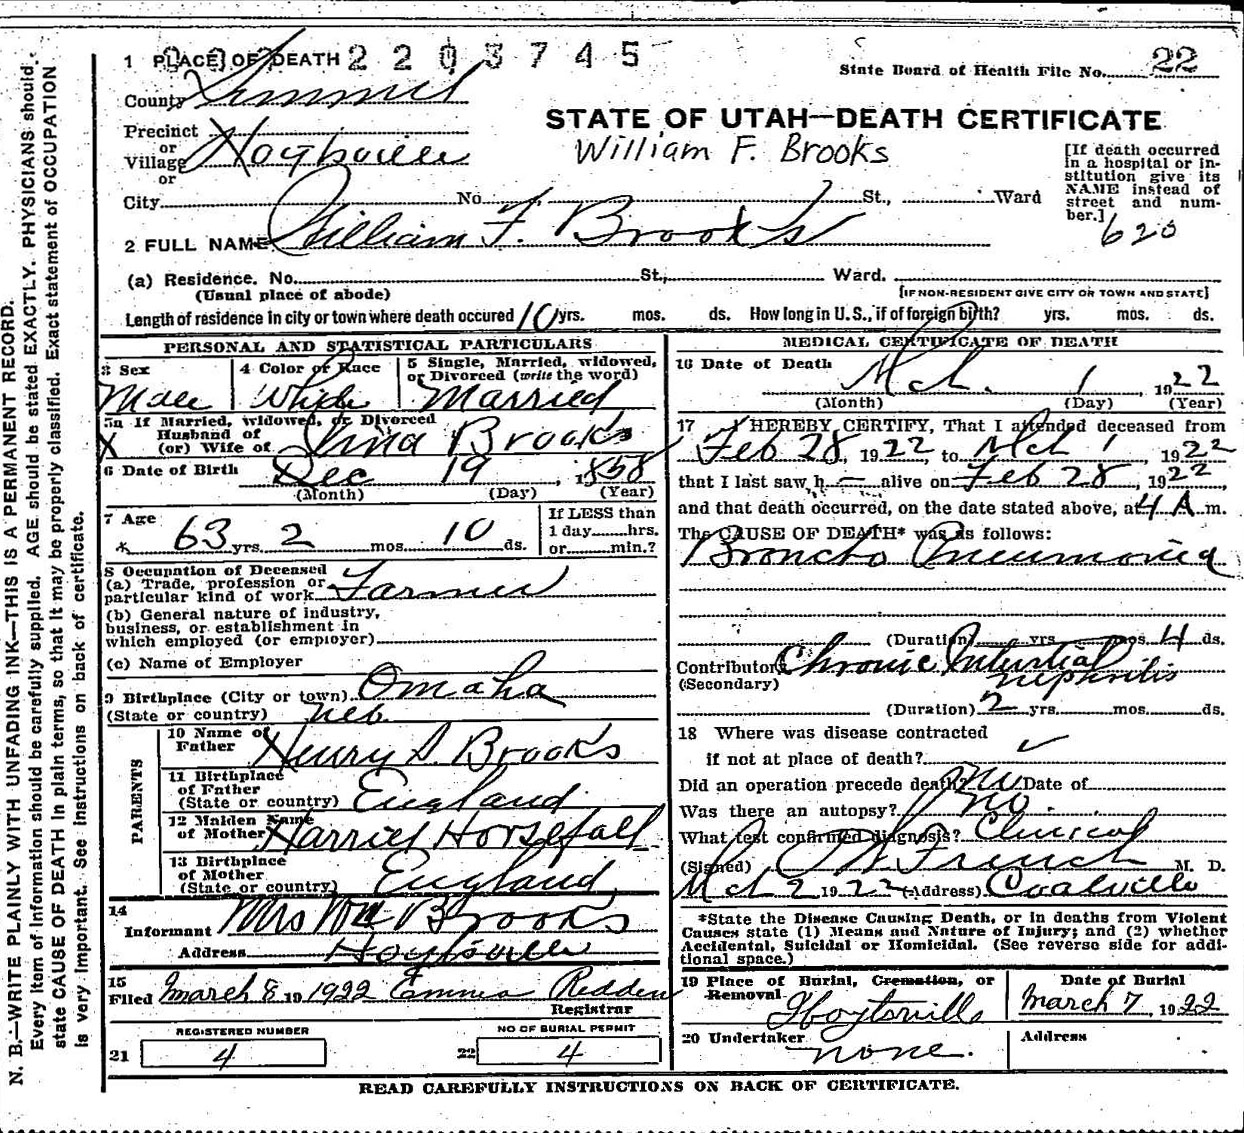 1 PLACE OF DEATH 2 2 0 3 7 4 5
State Board of Health File No. 22
County Summit
STATE OF UTAH—DEATH CERTIFICATE
Precinct
or
Village Hoytsville
or
William F. Brooks
[If death occurred
in a hospital or in-
stitution give its
NAME instead of
street and num-
ber.]
620
City No. St., Ward
2 FULL NAME William F. Brooks
(a) Residence. No. St., Ward.
(Usual place of abode) [IF NON-RESIDENT GIVE CITY OR TOWN AND STATE]
Length of residence in city or town where death occured 10 yrs. mos. ds. How long in U.S., if of foreign birth? yrs. mos. ds.
PERSONAL AND STATISTICAL PARTICULARS
3 Sex 4 Color or Race 5 Single, Married, widowed,
or Divorced (write the word)
Male White Married
5a If Married, widowed, or Divorced
Husband of
(or) Wife of Brooks
6 Date of Birth Dec 19, 1858
(Month) (Day) (Year)
7 Age 63 yrs. 2 mos. 10 ds.
If LESS than
1 day......hrs.
or......min.?
8 Occupation of Deceased
(a) Trade, profession or
particular kind of work Farmer
(b) General nature of industry,
business, or establishment in
which employed (or employer)
(c) Name of Employer
9 Birthplace (City or town) Omaha
(State or country) Neb.
PARENTS
10 Name of
Father Henry S. Brooks
11 Birthplace
of Father
(State or country) England
12 Maiden Name
of Mother Harriet Horsefall
13 Birthplace
of Mother
(State or country) England
14
Informant Mrs Wm Brooks
Address Hoytsville
15
Filed March 8 19 1922 Emma Redden
Registrar
REGISTERED NUMBER
21 4
NO OF BURIAL PERMIT
22 4
MEDICAL CERTIFICATE OF DEATH
16 Date of Death
Mch. 1 1922
(Month) (Day) (Year)
17 I HEREBY CERTIFY, That I attended deceased from
Feb 28, 1922, to Mch 1, 1922
that I last saw h alive on Feb 28, 1922,
and that death occurred, on the date stated above, at 4 A m.
The CAUSE OF DEATH* was as follows:
Broncho Pneumonia
(Duration) yrs. mos. 4 ds.
Contributory Chronic Interstitial
(Secondary) nephritis
(Duration) 2 yrs. mos. ds.
18 Where was disease contracted
if not at place of death?
Did an operation precede death? no Date of
Was there an autopsy? no.
What test confirmed diagnosis? Clinical
(Signed) French M. D.
Mch 2 1922 (Address) Coalville
*State the Disease Causing Death, or in deaths from Violent
Causes state (1) Means and Nature of Injury; and (2) whether
Accidental, Suicidal or Homicidal. (See reverse side for addi-
tional space.)
19 Place of Burial, Cremation, or
Removal
Hoytsville
Date of Burial
March 7, 1922
20 Undertaker
none.
Address
READ CAREFULLY INSTRUCTIONS ON BACK OF CERTIFICATE.
N. B.—WRITE PLAINLY WITH UNFADING INK—THIS IS A PERMANENT RECORD.
Every item of information should be carefully supplied. AGE should be stated EXACTLY. PHYSICIANS should
state CAUSE OF DEATH in plain terms, so that it may be properly classified. Exact statement of OCCUPATION
is very important. See instructions on back of certificate.